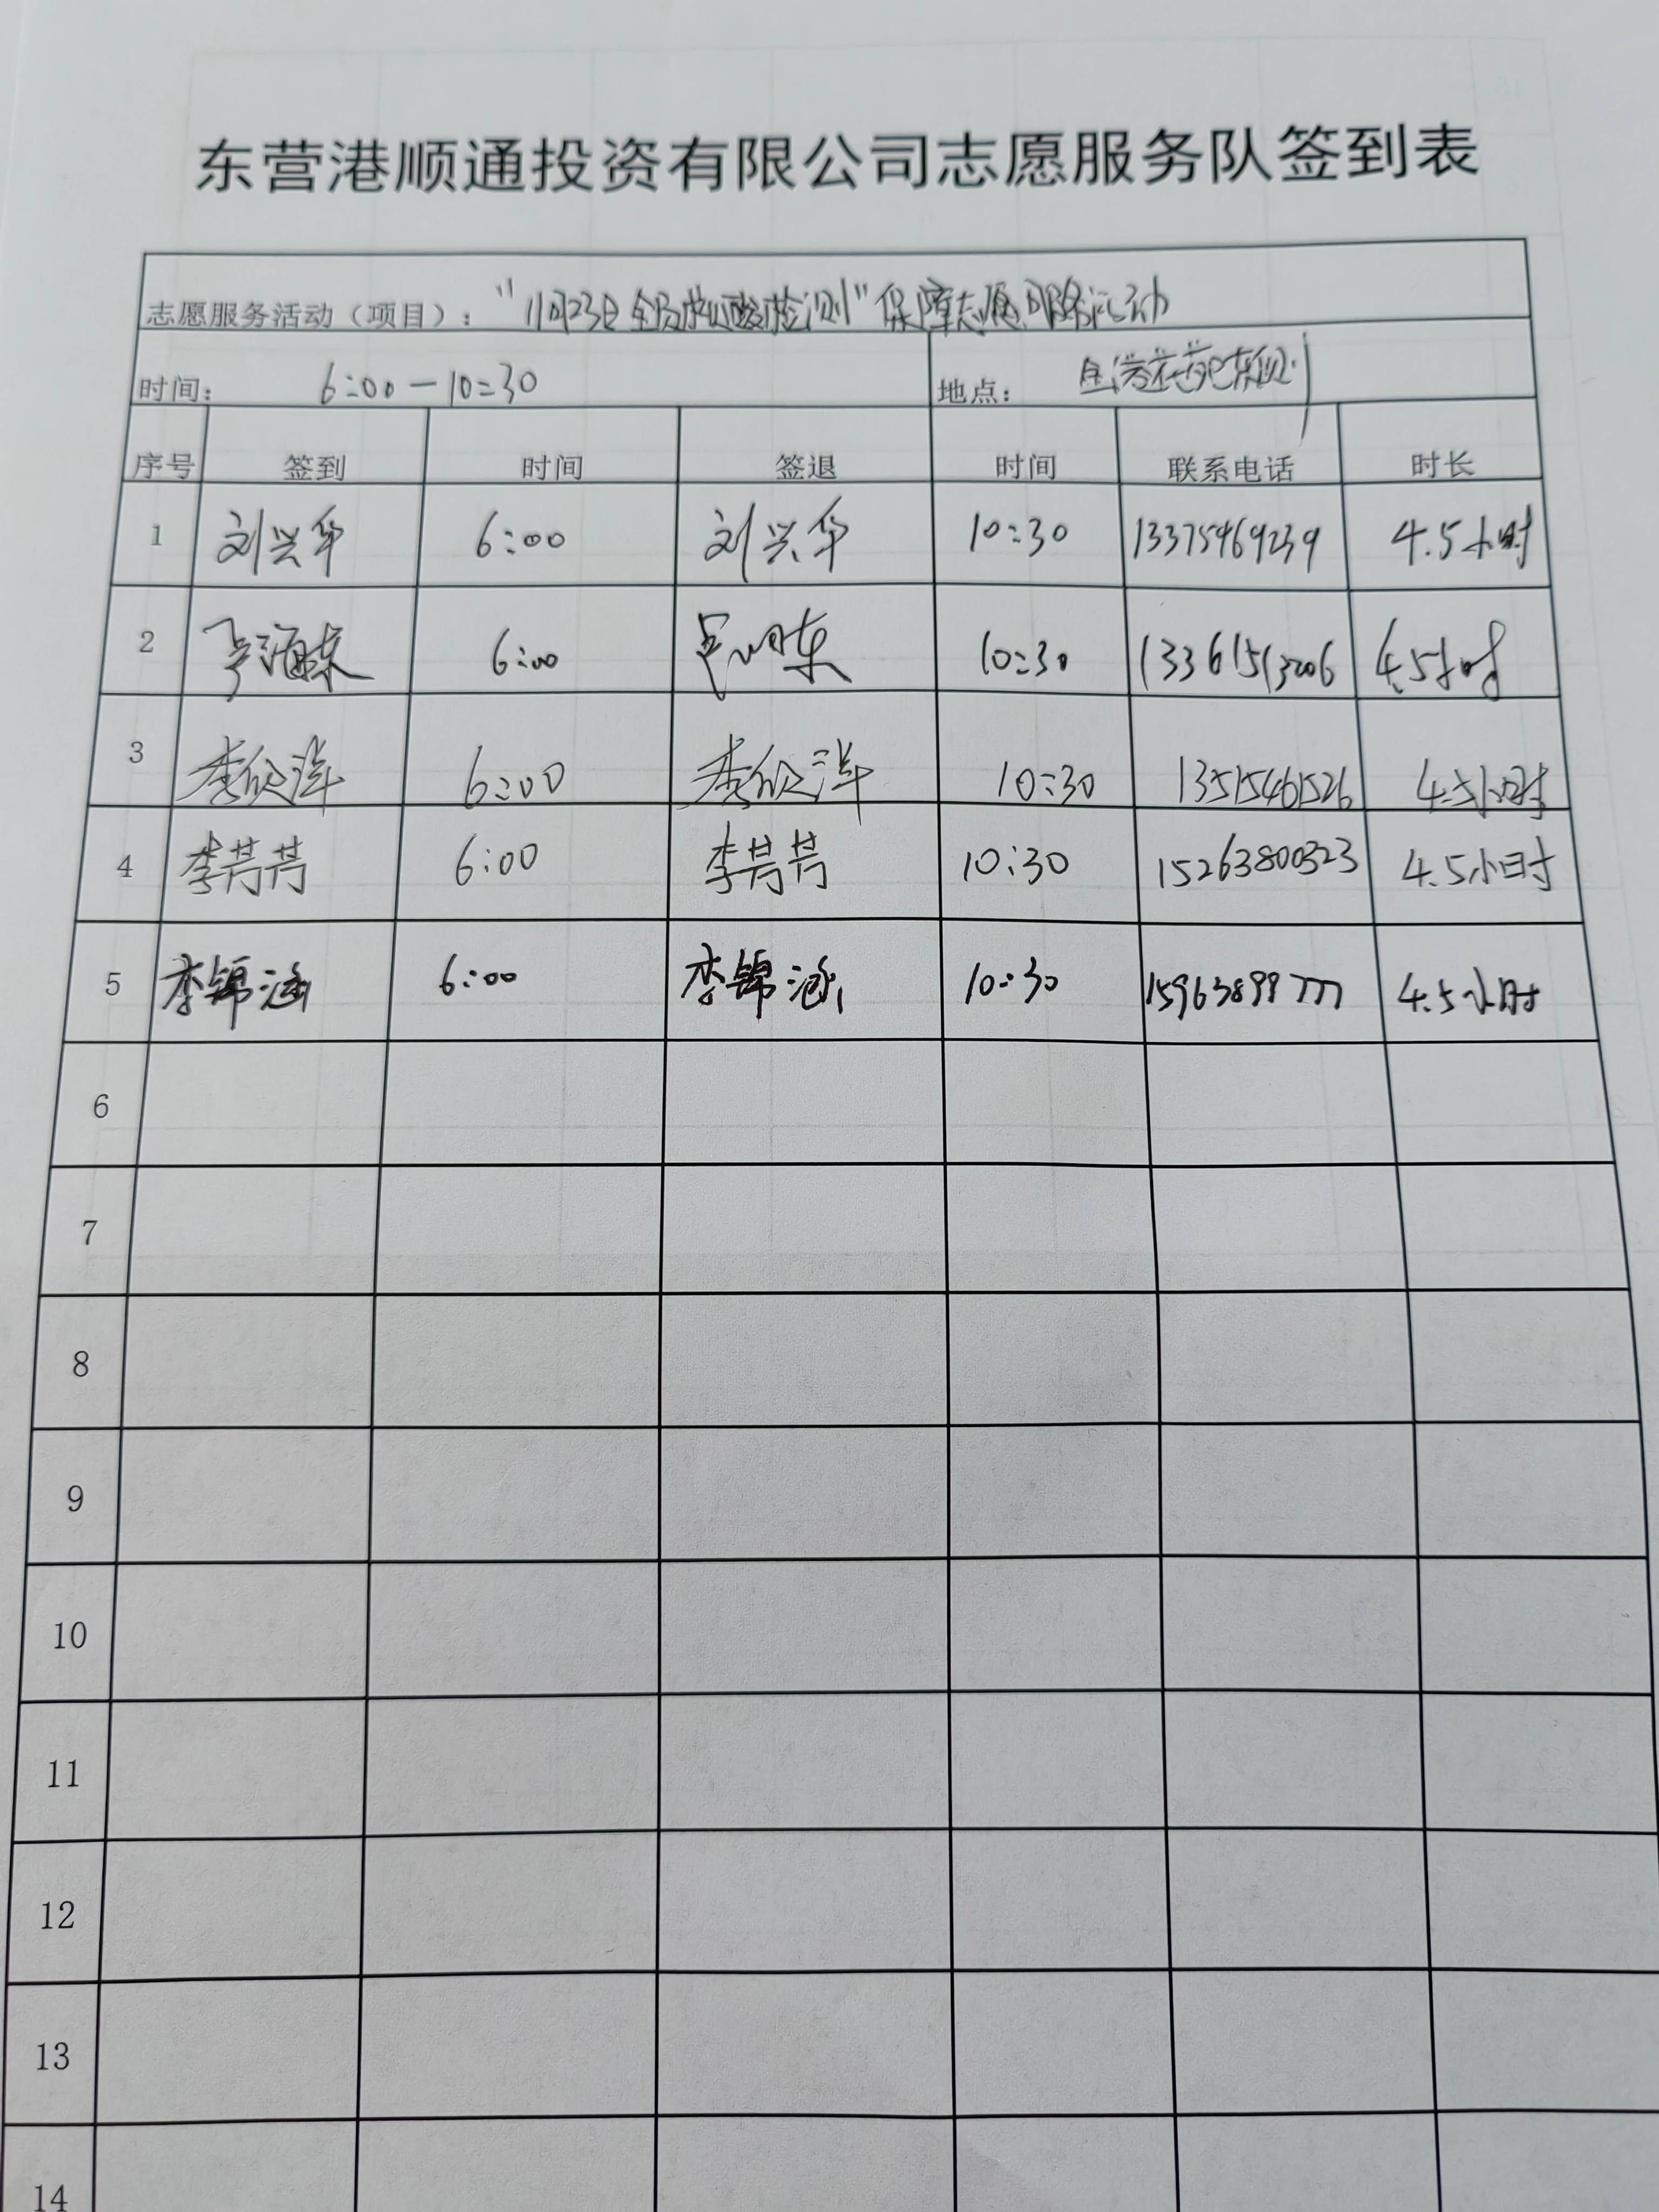 东营港顺通投资有限公司志愿服务队签到表
志愿服务活动（项目）： "11月23日全员核酸检测"保障志愿服务活动
时间： 6:00—10:30 地点：
序号 签到 时间 签退 时间 联系电话 时长
1 刘兴华 6:00 刘兴华 10:30 13375469239 4.5小时
2 6:00 10:30 13361513206 4.5小时
3 李欣洋 6:00 李欣洋 10:30 13515461526 4.5小时
4 李芳芳 6:00 李芳芳 10:30 15263800323 4.5小时
5 李锦涵 6:00 李锦涵 10:30 15963899777 4.5小时
6
7
8
9
10
11
12
13
14